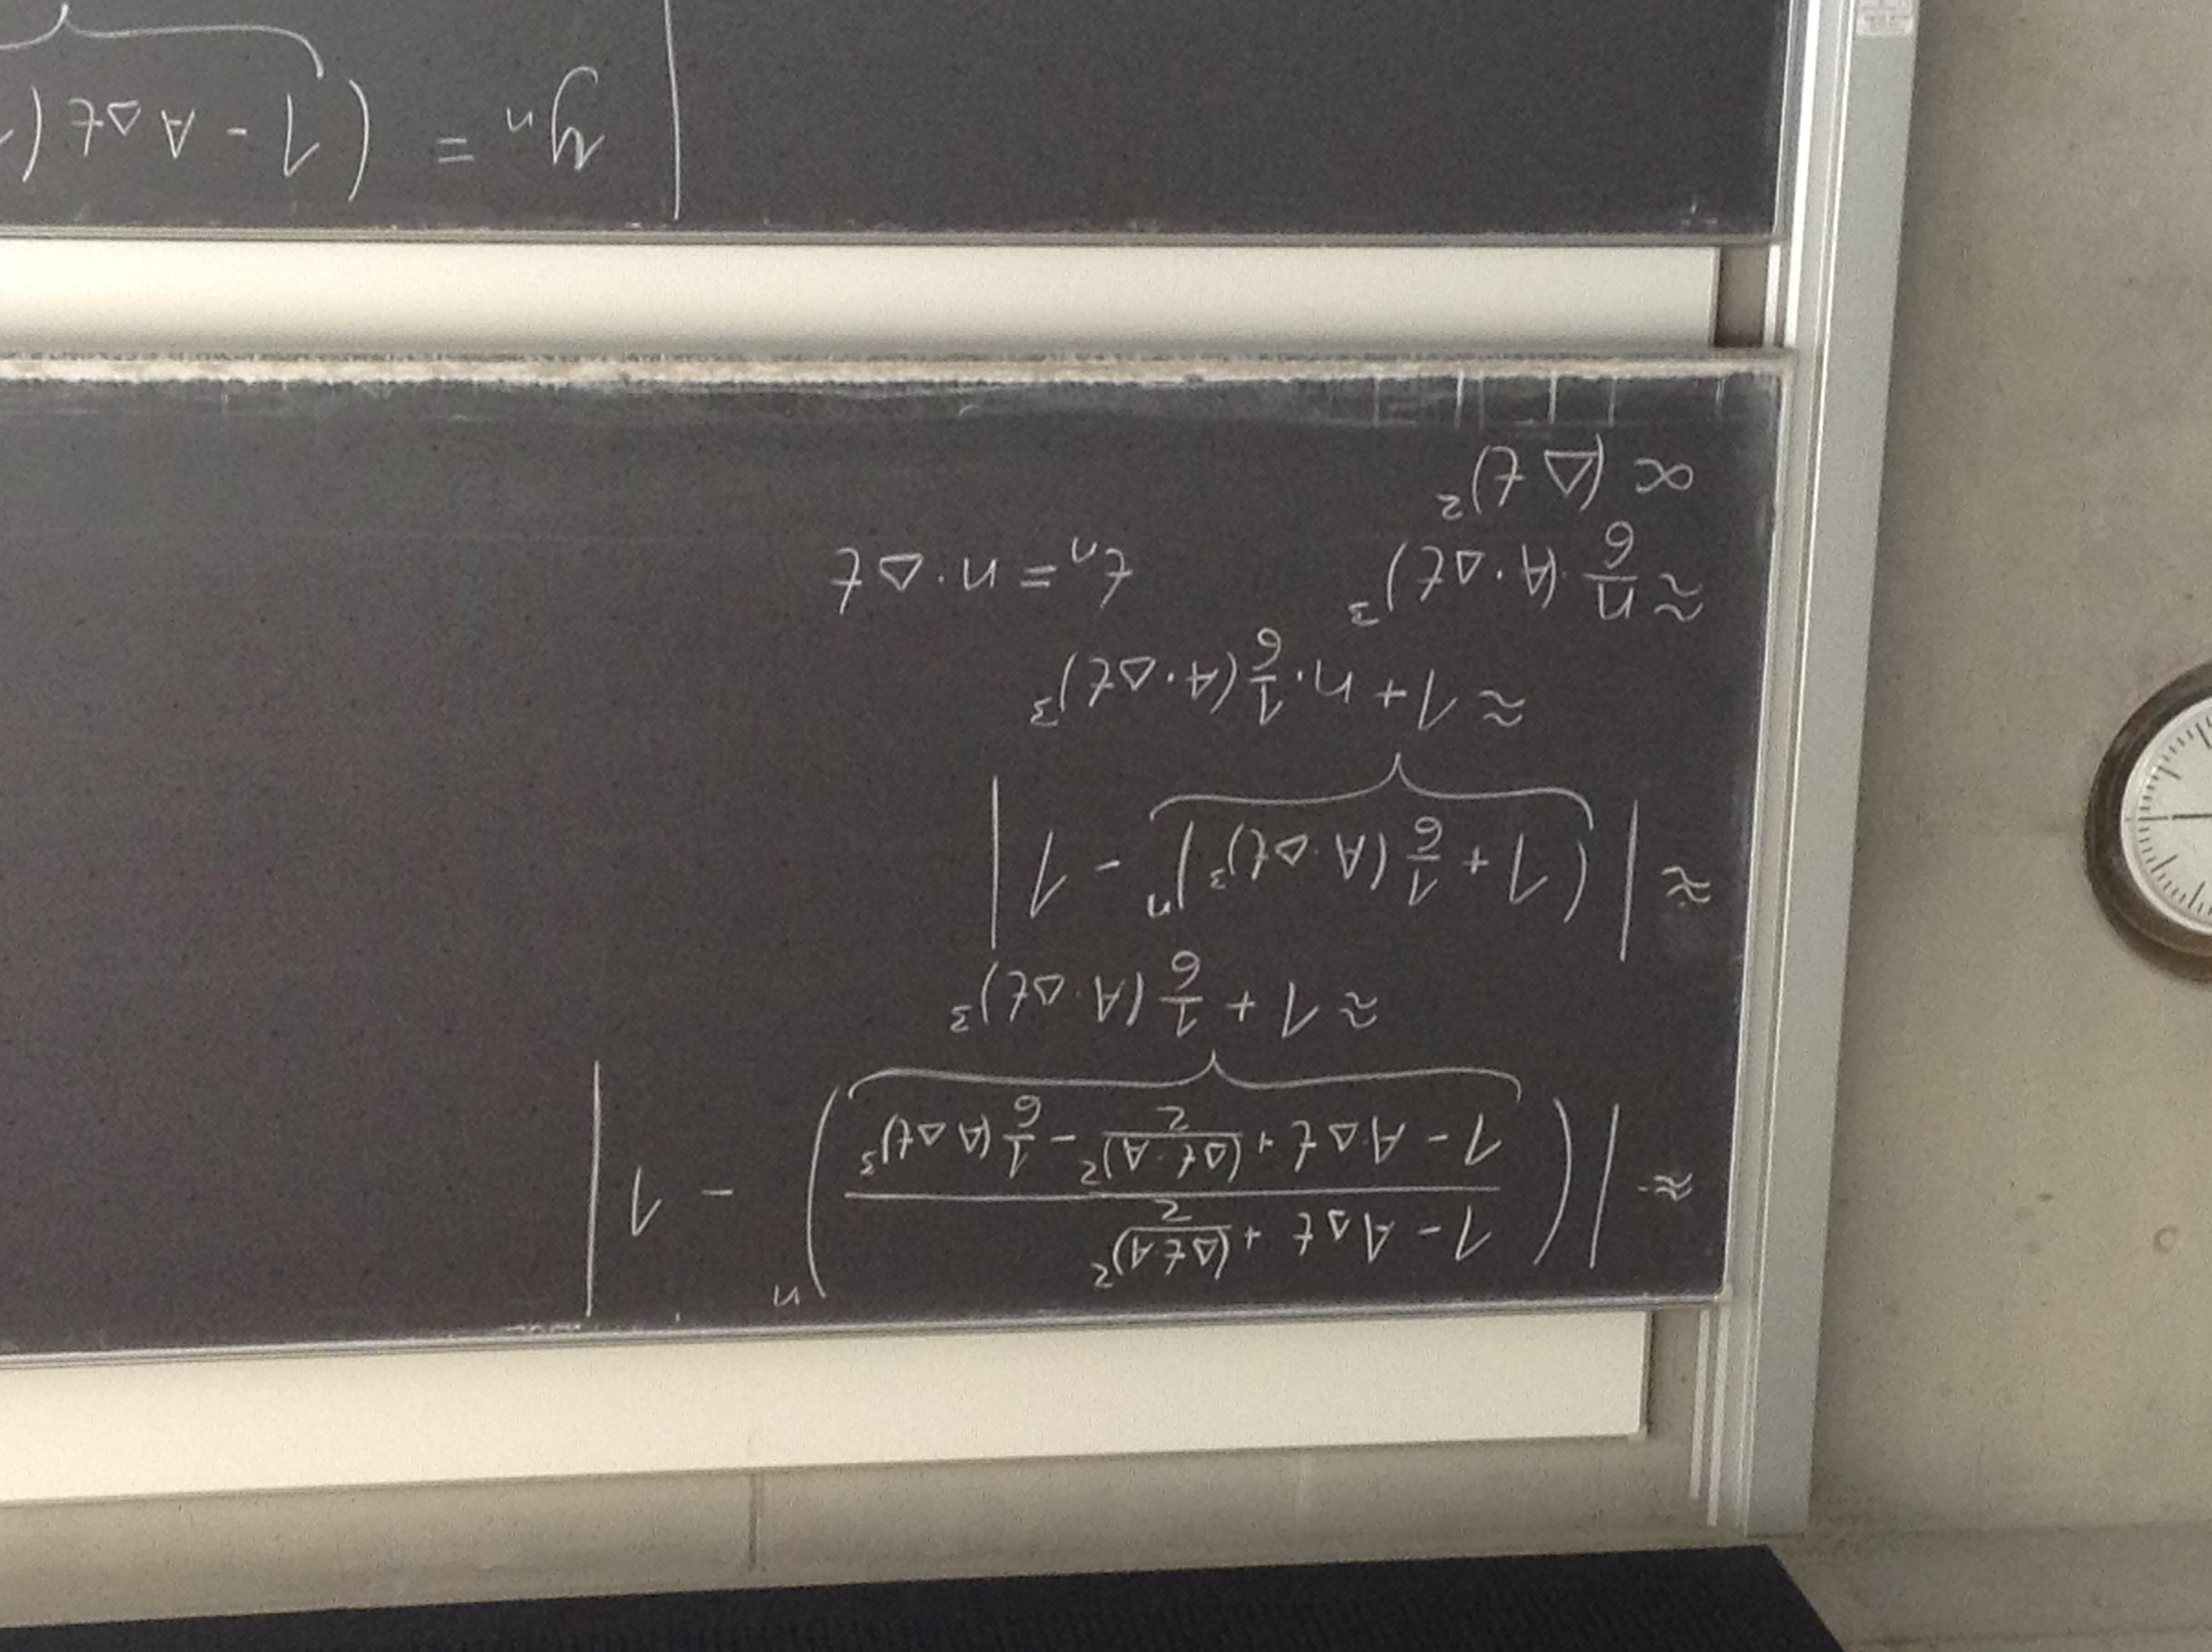 ≈ |( (1 - AΔt + (Δt·A)²/2) / (1 - A·Δt + (Δt·A)²/2 - 1/6 (A Δt)³) )ⁿ - 1|
≈ 1 + 1/6 (A·Δt)³
≈ |(1 + 1/6 (A·Δt)³)ⁿ - 1|
≈ 1 + n·1/6 (A·Δt)³
≈ n/6 · (A·Δt)³ tₙ = n·Δt
∝ (Δt)²
yₙ = (1 - AΔt (